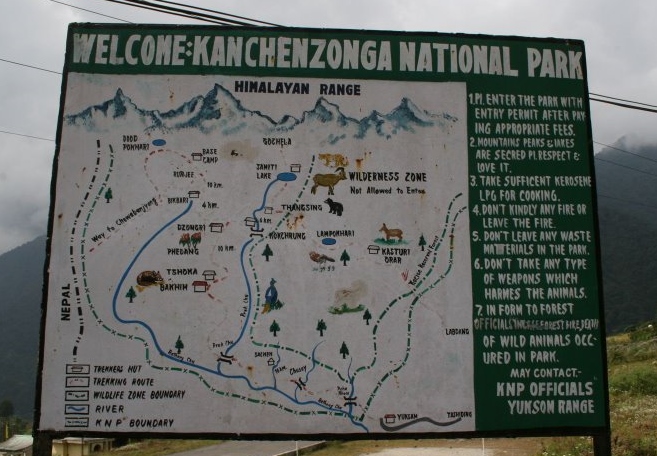 WELCOME:KANCHENZONGA NATIONAL PARK
HIMALAYAN RANGE
DOOD
POKHARI
BASE
CAMP
GOCHELA
RURJEE
JAMETI
LAKE
WILDERNESS ZONE
Not Allowed to Enter
10 km.
BIKBARI
4 km.
THANGSING
Way to Chewabanjyang
DZONGRI
4 km
LAMPOKHARI
PHEDANG
10 km.
KOKCHRUNG
KASTURI
ORAR
TSHOKA
BAKHIM
NEPAL
Prek Chu
LABDANG
SACHEN
YUKSAM
TASHIDING
TREKKERS HUT
TREKKING ROUTE
WILDLIFE ZONE BOUNDARY
RIVER
K N P BOUNDARY
1.Pl. ENTER THE PARK WITH
ENTRY PERMIT AFTER PAY
ING APPROPRIATE FEES.
2. MOUNTAINS PEAKS & LAKES
ARE SECRED Pl. RESPECT &
LOVE IT.
3. TAKE SUFFICENT KEROSENE
LPG FOR COOKING.
4. DON'T KINDLY ANY FIRE OR
LEAVE THE FIRE.
5. DON'T LEAVE ANY WASTE
MATERIALS IN THE PARK.
6. DON'T TAKE ANY TYPE
OF WEAPONS WHICH
HARMES THE ANIMALS.
7. IN FORM TO FOREST
OFFICIALS
OF WILD ANIMALS OCC-
URED IN PARK.
MAY CONTACT:-
KNP OFFICIALS
YUKSOM RANGE